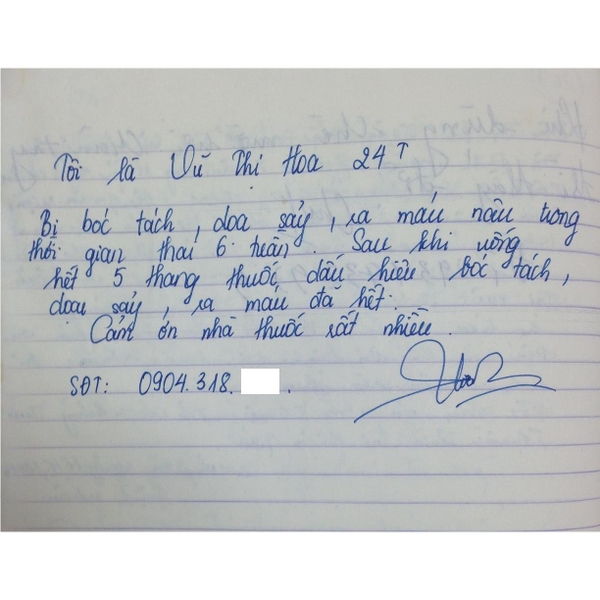 Tôi là Vũ Thị Hoa 24T
Bị bóc tách, doạ sảy, ra máu nâu trong
thời gian thai 6 tuần. Sau khi uống
hết 5 thang thuốc dấu hiệu bóc tách,
doạ sảy, ra máu đã hết.
Cảm ơn nhà thuốc rất nhiều.
SĐT: 0904.318. .